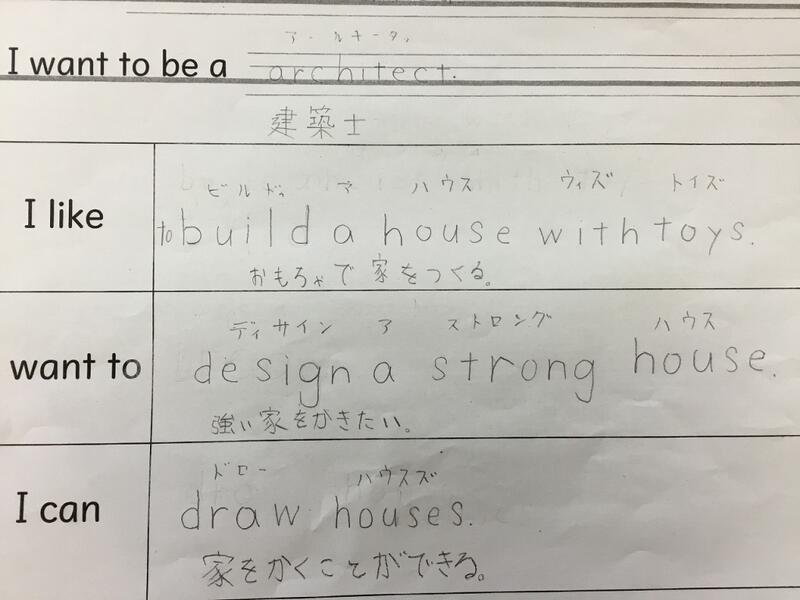 アーキータク
I want to be a architect.
建築士
ビルドゥ ア ハウス ウィズ トイズ
I like to build a house with toys.
おもちゃで家をつくる。
ディサイン ア ストロング ハウス
want to design a strong house.
強い家をがきたい。
ドロー ハウスズ
I can draw houses.
家をかくことができる。